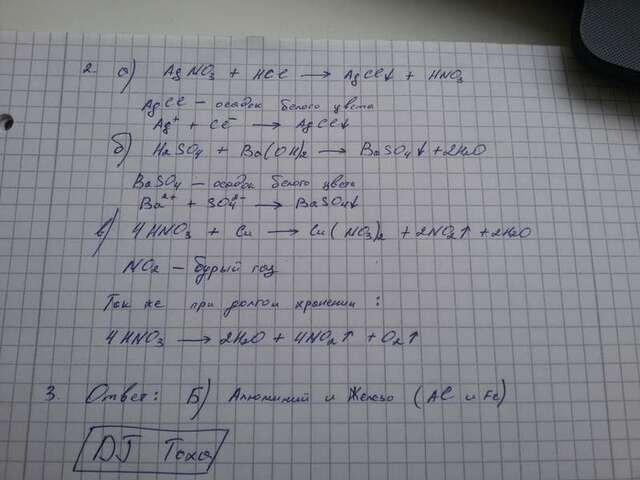 2. а) AgNO3 + HCl → AgCl↓ + HNO3
AgCl – осадок белого цвета
Ag⁺ + Cl⁻ → AgCl↓
б) H2SO4 + Ba(OH)2 → BaSO4↓ + 2H2O
BaSO4 – осадок белого цвета
Ba²⁺ + SO4²⁻ → BaSO4↓
в) 4HNO3 + Cu → Cu(NO3)2 + 2NO2↑ + 2H2O
NO2 – бурый газ
Так же при долгом хранении :
4HNO3 → 2H2O + 4NO2↑ + O2↑
3. Ответ: Б) Алюминий и Железо (Al и Fe)
DJ Тоха